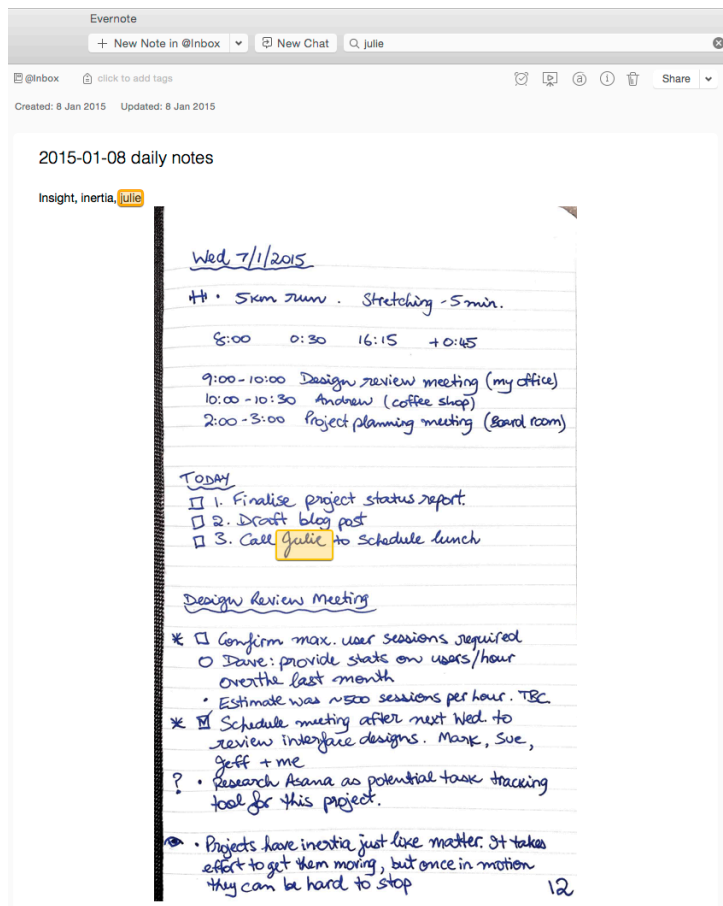 Evernote
+ New Note in @Inbox
New Chat
julie
@Inbox
click to add tags
Share
Created: 8 Jan 2015 Updated: 8 Jan 2015
2015-01-08 daily notes
Insight, inertia, julie
Wed 7/1/2015
H · 5km run . Stretching - 5 min.
8:00 0:30 16:15 +0:45
9:00-10:00 Design review meeting (my office)
10:00-10:30 Andrew (coffee shop)
2:00-3:00 Project planning meeting (Board room)
TODAY
1. Finalise project status report.
2. Draft blog post
3. Call Julie to schedule lunch
Design Review Meeting
* Confirm max. user sessions required
Dave: provide stats on users/hour
over the last month
· Estimate was ~500 sessions per hour. TBC
* Schedule meeting after next Wed. to
review interface designs. Mark, Sue,
Jeff + me
? · Research Asana as potential task tracking
tool for this project.
· Projects have inertia just like matter. It takes
effort to get them moving, but once in motion
they can be hard to stop
12